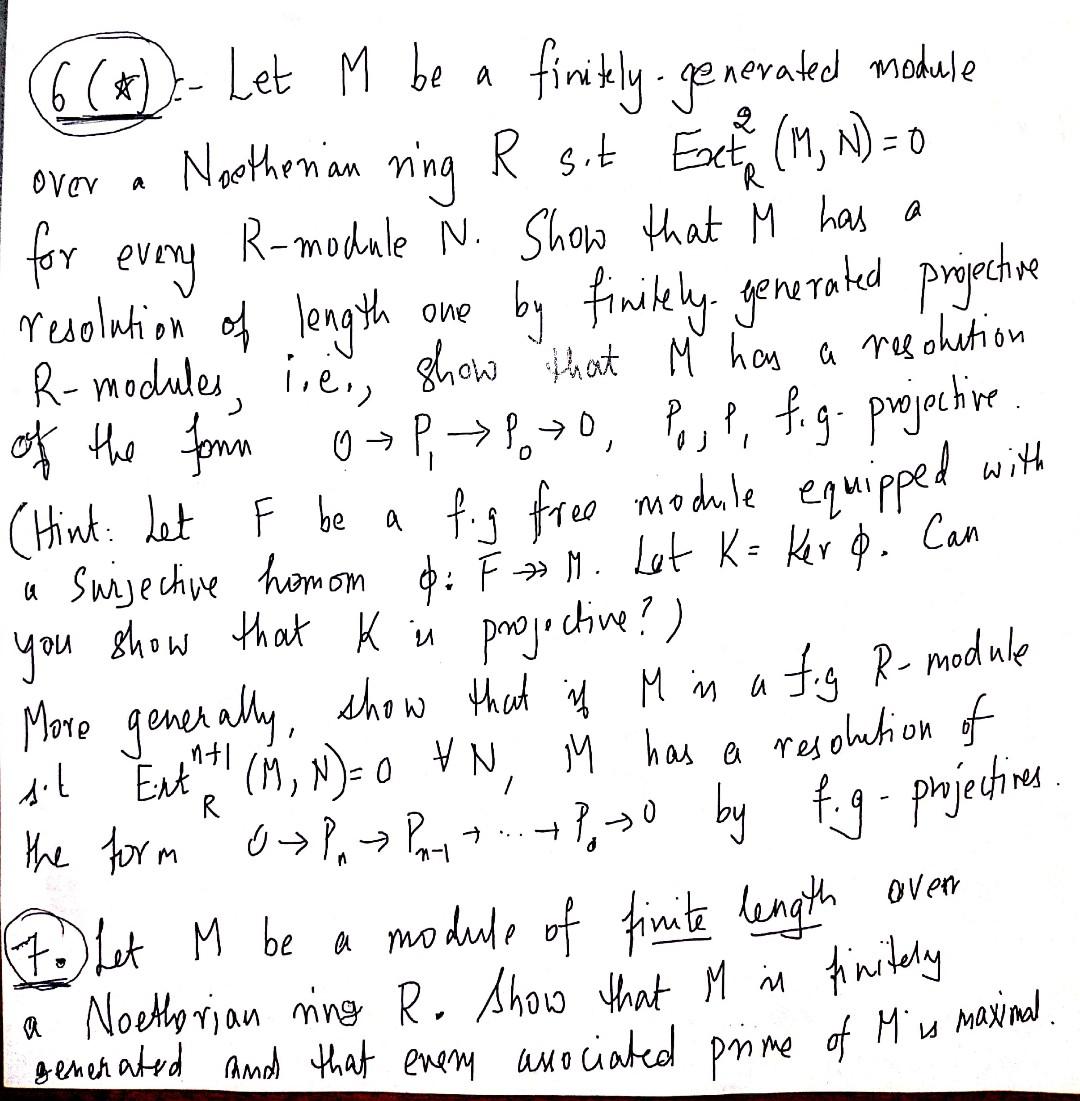 6(☆) :- Let M be a finitely-generated module
over a Noetherian ring R s.t Ext²_R (M, N) = 0
for every R-module N. Show that M has a
resolution of length one by finitely-generated projective
R-modules, i.e., show that M has a resolution
of the form 0 → P₁ → P₀ → 0, P₀, P₁ f.g. projective.
(Hint: Let F be a f.g free module equipped with
a surjective homom ϕ: F ↠ M. Let K = Ker ϕ. Can
you show that K is projective?)
More generally, show that if M is a f.g R-module
s.t Ext^{n+1}_R (M, N) = 0 ∀ N, M has a resolution of
the form 0 → Pₙ → Pₙ₋₁ → ... → P₀ → 0 by f.g - projectives.
7. Let M be a module of finite length over
a Noetherian ring R. Show that M is finitely
generated and that every associated prime of M is maximal.